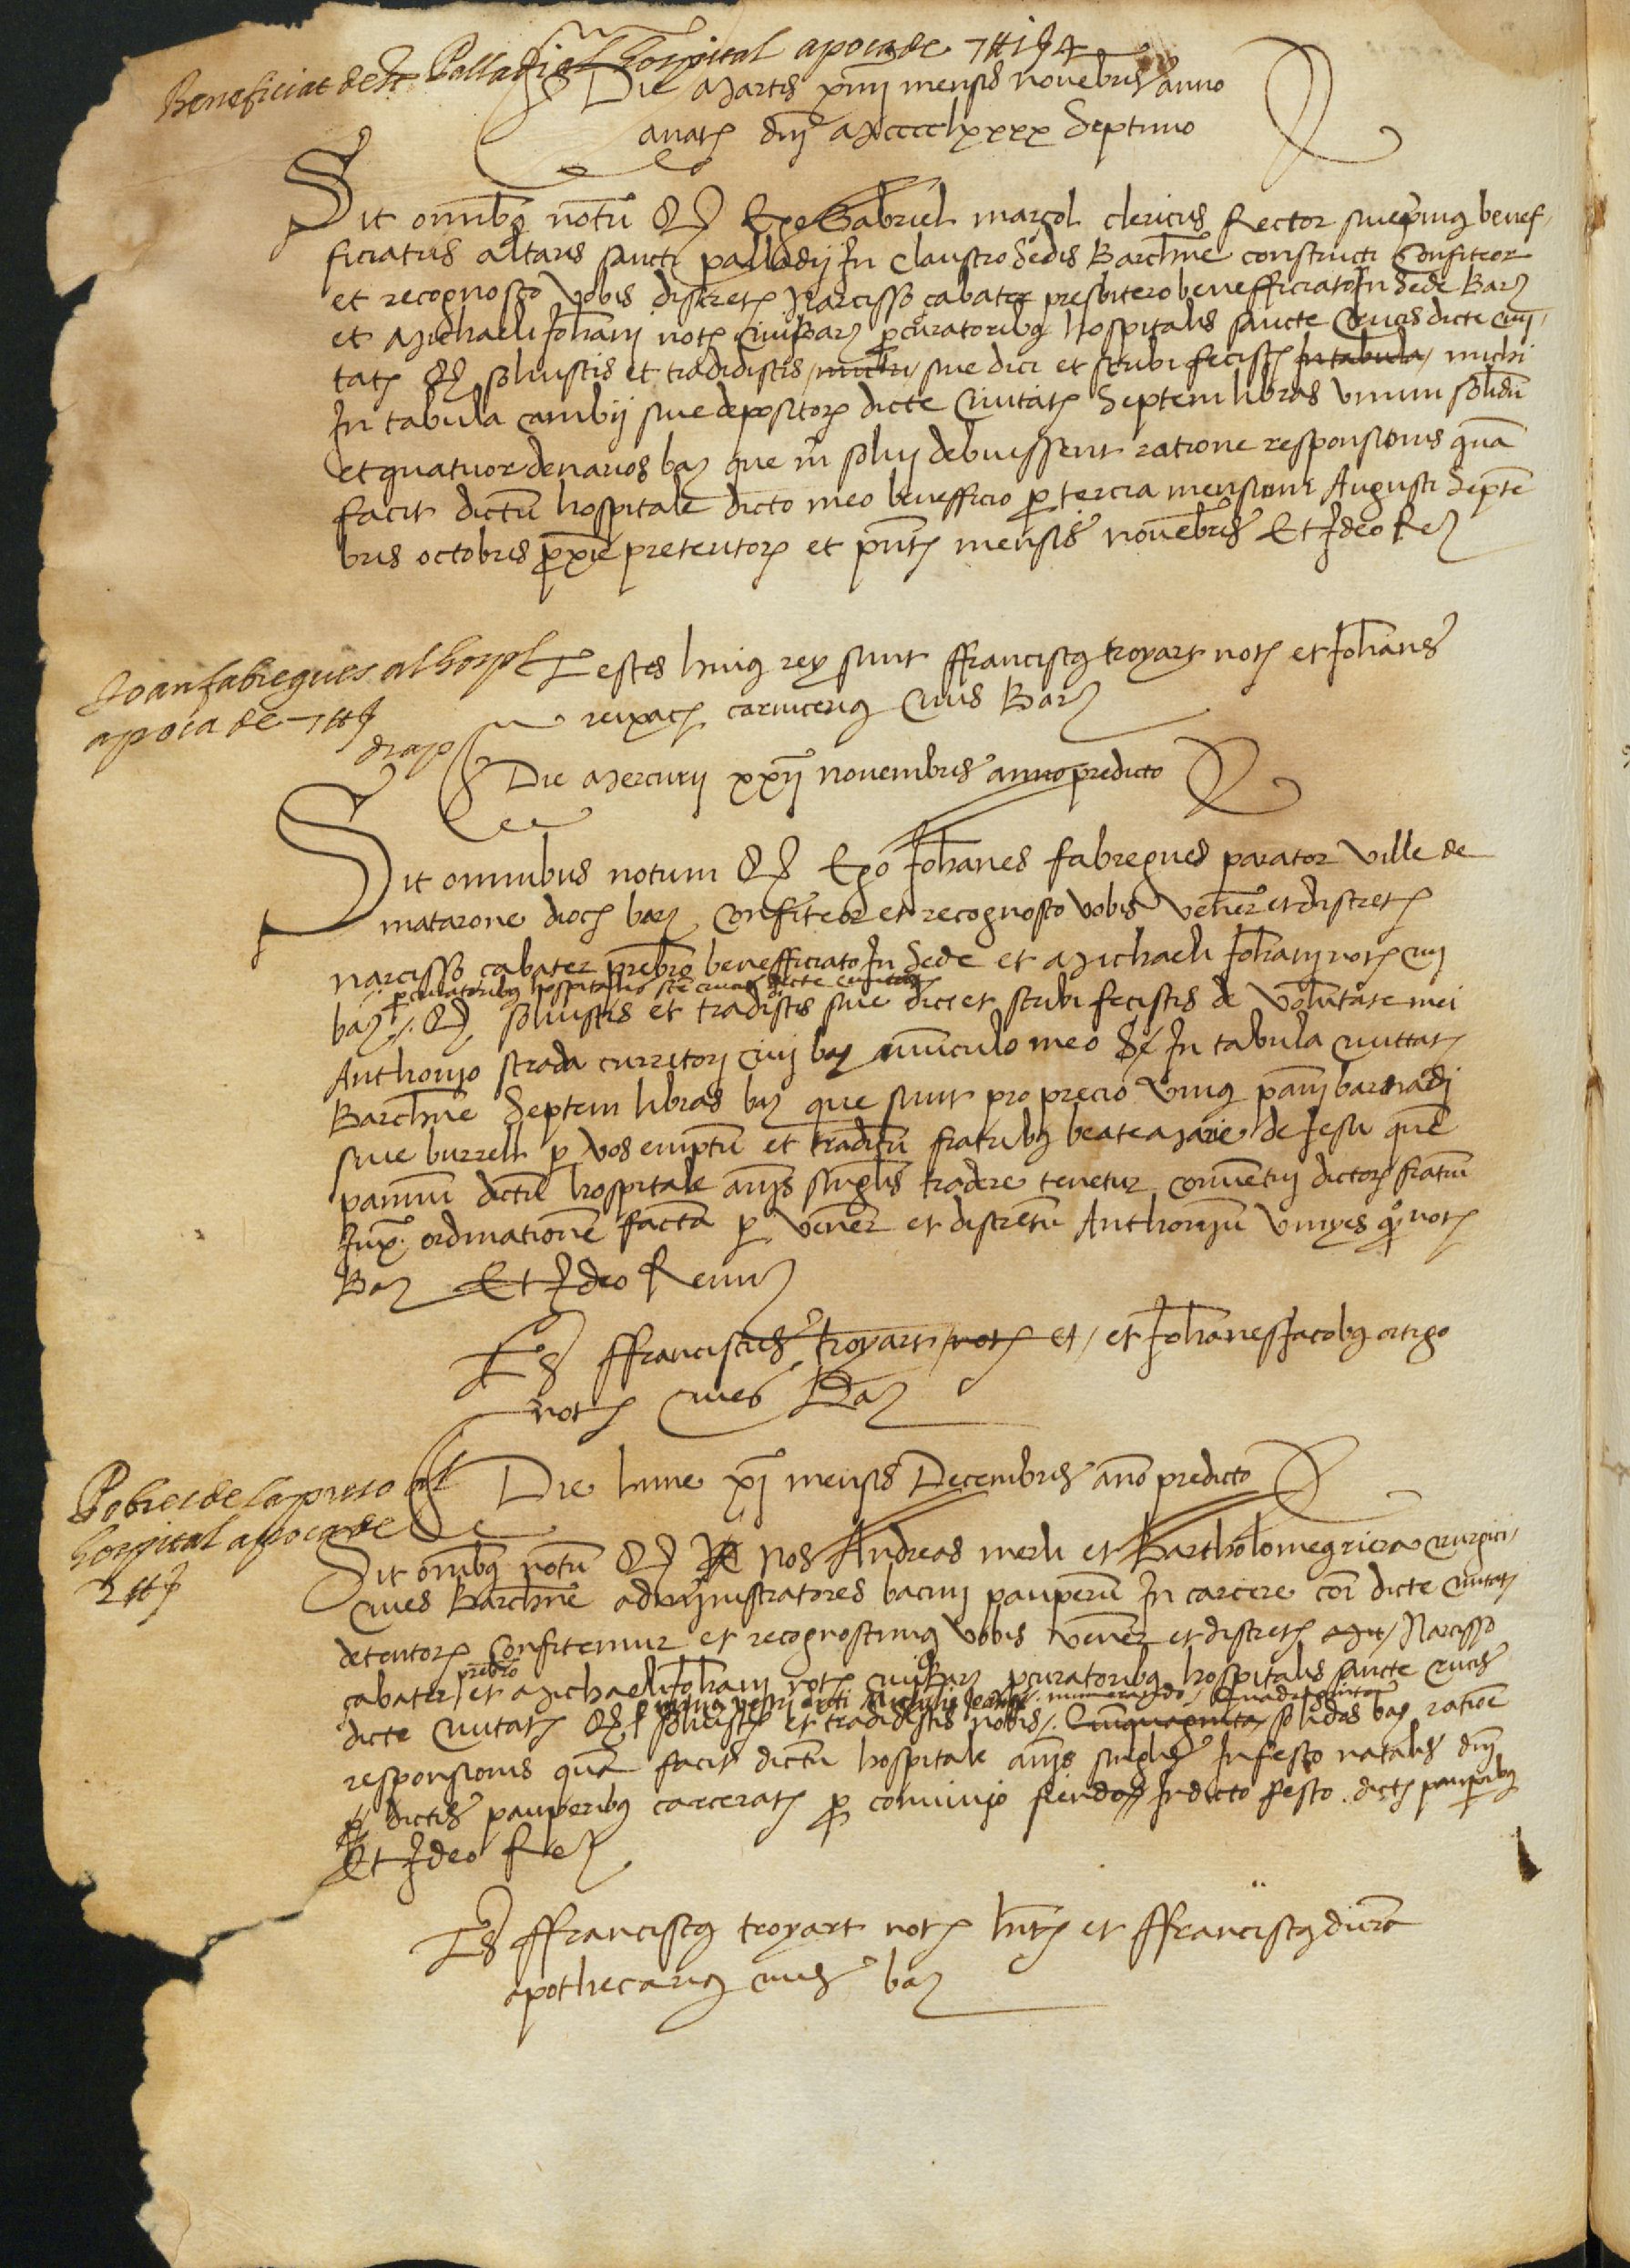 Beneficiat de St Palladi al hospital apoca de 7 ₶ 1 ș 4
Die Martis xiiii mensis novebris anno
a natˢ dnj Mcccclxxxx Septimo
Sit omibꝰ notu Qꝫ Ego Gabriel marçol clericus Rector sive pimꝰ benef-
ficiatus altaris sancti palladij In claustro Sedis Barchne constructi Confiteor
et recognosco vobis discretˢ Narcisso çabater presbitero benefficiato In Sede Barꝫ
et Michaeli Johanj notˢ civi Barꝫ pcuratoribꝰ hospitalis sancte Crucis dicte civi-
tatˢ Qꝫ solvistis et tradidistis / michi / sive dici et scribi fecistˢ In tabula / michi
In tabula cambij sive depositorꝫ dicte Civitatˢ Septem libras unum solidu
et quatuor denarios barꝫ que m solvj debuissent ratione responsionis qua
facit dictu hospitale dicto meo benefficio p tercia mensium Augusti Septe
bris octobris pxie preteritorꝫ et pntˢ mensis novebris Et Ideo Reꝫ
Joan fabregues al hospl
apoca de 7 ₶ ș
drap
Testes huiꝰ rey sunt ffranciscꝰ troyart notˢ et Johanes
reixachs carnicerꝰ cives Barꝫ
Die Mercurij xxij novembris anno predicto
Sit omnibus notum Qꝫ Ego Johanes fabregues parator ville de
matarone diocˢ barꝫ Confiteor et recognosco vobis vener et discretˢ
narcisso çabater prebro benefficiato In Sede et Michaeli Johanj notˢ civi
pcuratoribꝰ hospitalis ste crucis dicte civitatˢ
barꝫ /. Qꝫ solvistis et tradistis sive dici et scribi fecistis de voluntate mei
Anthonio strada curritorj civi barꝫ avunculo meo In tabula civitatˢ
Barchne Septem libras barꝫ que sunt pro precio uniꝰ panj barnadi
sive burrell p vos emptu et traditu fratribꝰ beate Marie de Jesu que
pannu dictu hospitale anijs singlis tradere tenetur conventuj dictorꝫ fratru
Juxᵃ ordinatione facta p vener et discretu Anthoniu vinyes qº notˢ
Barꝫ Et Ideo Renunꝫ
Tˢ ffranciscus troyart / notˢ et / et Johanes Jacobꝰ ortigo
notˢ cives Barꝫ
Pobres de la preso al
hospital apoca de
2 ₶ ș
Die lune xj mensis Decembris ano predicto
Sit omibꝰ notu Qꝫ nos Andreas merli et Bartholomeꝰ riera cirurgici
cives Barchne administratores bacini pauperu In carcere coi dicte civitatˢ
detentorꝫ Confitemur et recognoscimꝰ vobis vener et discretˢ / Narcisso
çabater prebro et Michaeli Johanj notˢ civi Barꝫ pcuratoribꝰ hospitalis sancte crucis
numerando / Quadraginta
dicte civitatˢ Qꝫ solvistˢ et tradidistis nobis /. Cinquaginta solidos barꝫ ratione
responsionis qua facit dictu hospitale anijs singlis In festo natalis dnj
dictis pauperibꝰ carceratˢ p convivjo fiendo In dicto festo dictˢ pauperibꝰ
Et Ideo Reꝫ
Tˢ ffranciscꝰ troyart notˢ et ffranciscꝰ
apothecariꝰ cives barꝫ